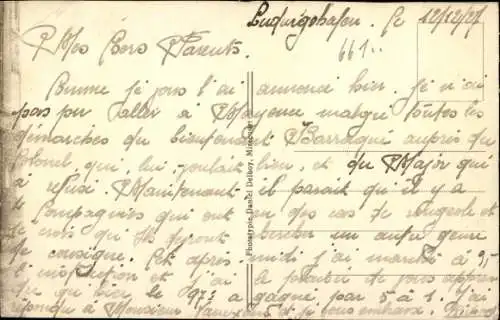 Ludwigshafen, le 12/12/27
661..
Mes Chers Parents.
Comme je vous l'ai annoncé hier, je n'ai
pas pu aller à Mayence malgré toutes les
démarches du lieutenant Barragué auprès du
Colonel, qui, lui, voulait bien, et du Major qui
a refusé. Maintenant il parait qu'il y a
2 Compagnies qui ont eu des cas de rougeole et
je crois qu'ils devront un autre genre
de consigne. Cet après midi j'ai marché à
l'instruction et j'ai le plaisir de vous apprendre
que hier le a gagné par 5 à 1. J'ai
répondu à Monsieur et je vous embrasse.
Phototypie Daniel Delboy, Mirecourt